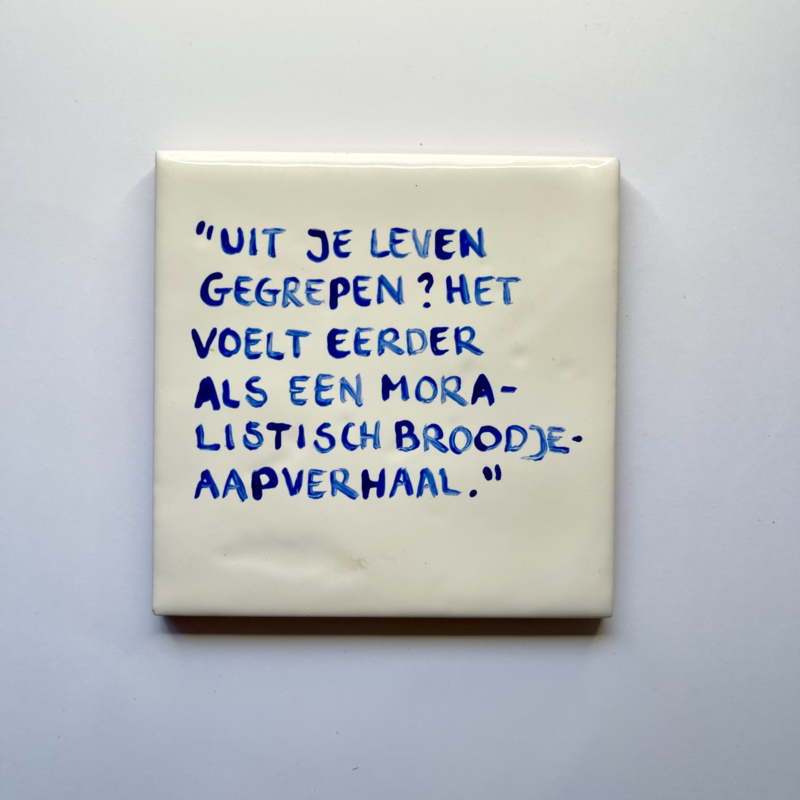 "UIT JE LEVEN
GEGREPEN? HET
VOELT EERDER
ALS EEN MORA-
LISTISCH BROODJE-
AAPVERHAAL."